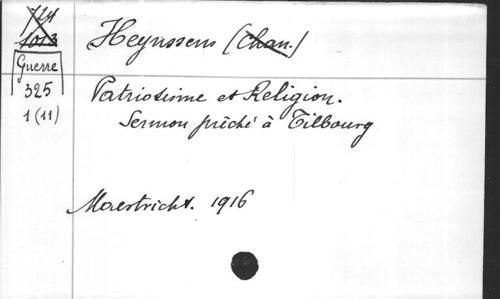 Heynssens (Chan.)
Guerre
325
1 (11)
Patriotisme et Religion.
Sermon prêché à Tilbourg
Maestricht. 1916